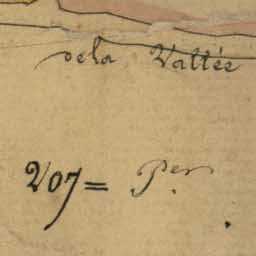 de la Vallée
Voy= Per.